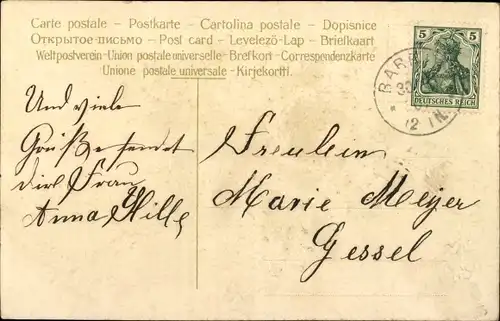 Carte postale – Postkarte – Cartolina postale – Dopisnice
Открытое письмо – Post card – Levelező-Lap – Briefkaart
Weltpostverein - Union postale universelle - Brefkort - Correspondenzkarte
Unione postale universale - Kirjekortti.
5 5
DEUTSCHES REICH
BAR
12 N.
Und viele
Grüße sendet
dir Frau
Anna Hille
Freulein
Marie Meyer
Gessel